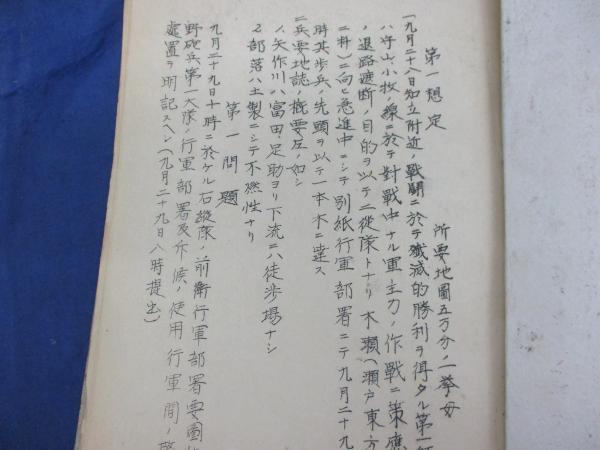 第一想定
所要地圖五万分ノ一挙母
九月二十八日知立附近ノ戰鬪ニ於テ殲滅的勝利ヲ得タル第一師
ハ守山、小牧ノ線ニ於テ對戰中ナル軍主力ノ作戰ニ策應
ノ退路遮断ノ目的ヲ以テ二縦隊トナリ木瀬(瀬戸東方
ニ粁)ニ向ヒ急進中ニシテ別紙行軍部署ニテ九月二十九
時其歩兵ノ先頭ヲ以テ一本木ニ達ス
ニ兵要地誌ノ概要左ノ如シ
1、矢作川ハ富田、足助ヨリ下流ニハ徒歩場ナシ
2部落ハ土製ニシテ不燃性ナリ
第一問題
九月二十九日十時ニ於ケル右縦隊ノ前衛行軍部署要圖
野砲兵第一大隊ノ行軍部署及斥候ノ使用行軍間ノ警
處置ヲ明記スヘシ(九月二十九日八時提出)